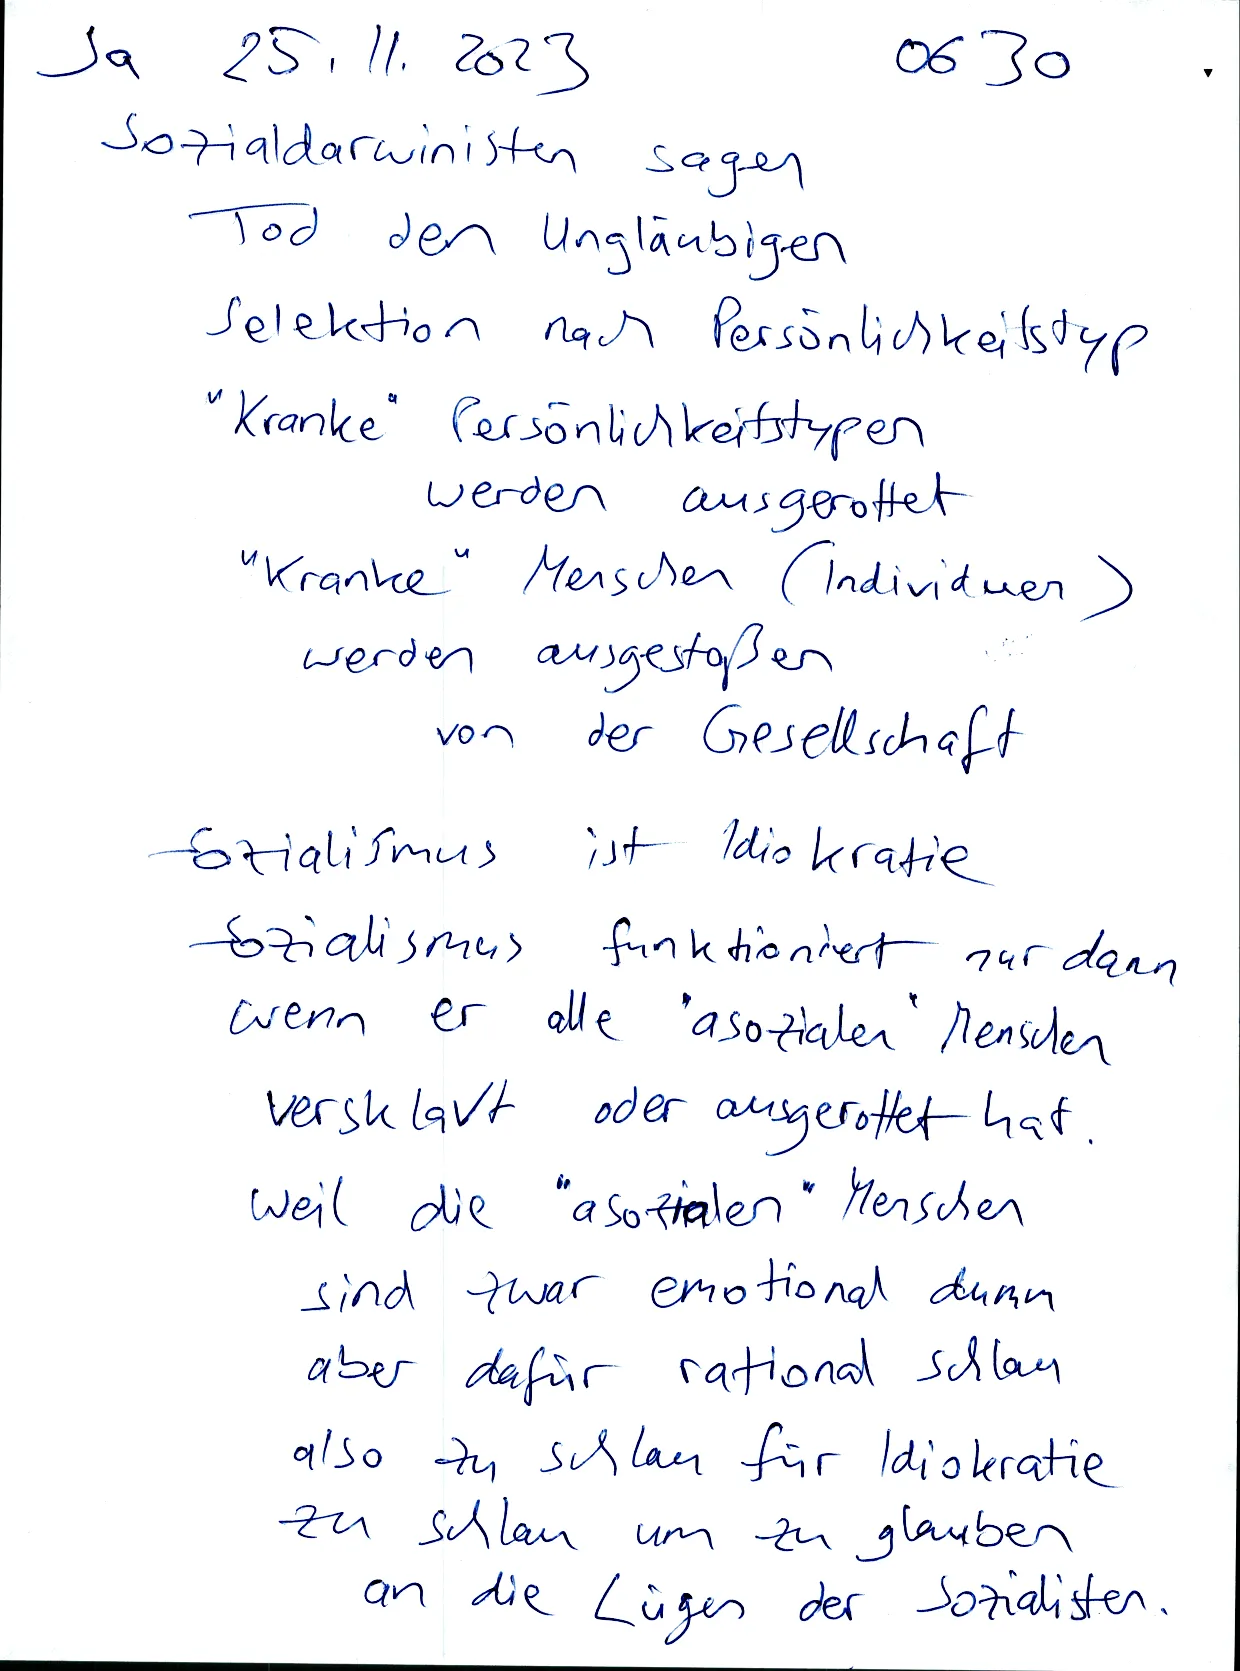 Sa 25.11.2023 0630
Sozialdarwinisten sagen
Tod den Ungläubigen
Selektion nach Persönlichkeitstyp
"Kranke" Persönlichkeitstypen
werden ausgerottet
"Kranke" Menschen (Individuen)
werden ausgestoßen
von der Gesellschaft
Sozialismus ist Idiokratie
Sozialismus funktioniert nur dann
wenn er alle "asozialen" Menschen
versklavt oder ausgerottet hat.
weil die "asozialen" Menschen
sind zwar emotional dumm
aber dafür rational schlau
also zu schlau für Idiokratie
zu schlau um zu glauben
an die Lügen der Sozialisten.